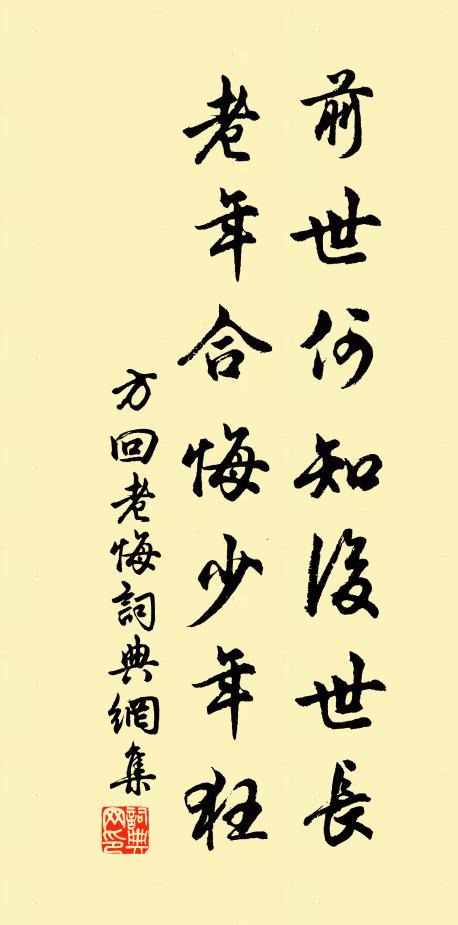 前世何知後世長
老年合悔少年狂
方回老悔詞典網集
詞典网印